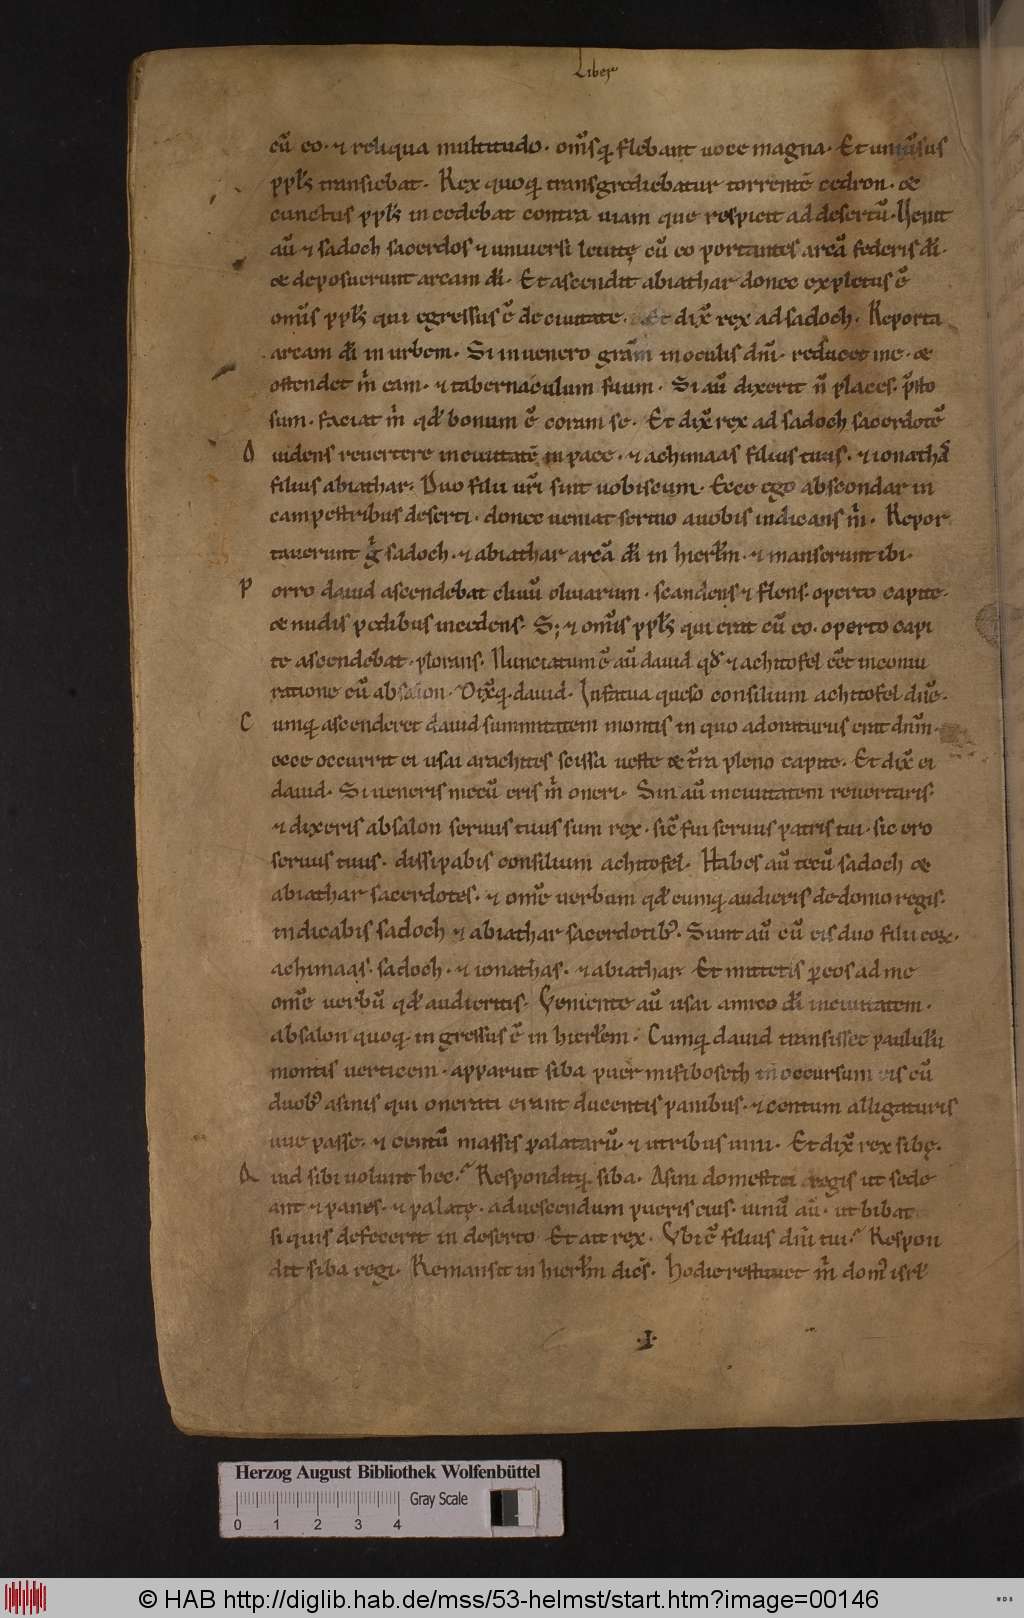 Liber
cū eo· ⁊ reliqua multitudo· om̄sq; flebant uoce magna· Et uniu͛sus
ppl̄s transiebat· Rex quoq; transgrediebatur torrentē cedron· &
cunctus ppl̄s incedebat contra uiam que respicit ad desertū· Uenit
aū ⁊ sadoch sacerdos ⁊ uniuersi leuitę cū eo portantes arcā federis dī·
& deposuerunt arcam dī· Et ascendit abiathar donec expletus ē
om̄is ppl̄s qui egressus ē de ciuitate· Et dix̄ rex ad sadoch· Reporta
arcam dī in urbem· Si inuenero grām in oculis dn̄i· reducet me· &
ostendet m̄ eam· ⁊ tabernaculum suum· Si aū dixerit n̄ places· p̄sto
sum· faciat m̄ qd̄ bonum ē coram se· Et dix̄ rex ad sadoch sacerdotē
O uidens reuertere in ciuitatē in pace· ⁊ achimaas filius tuus· ⁊ ionathā
filius abiathar· Duo filii ur̄i sint uobiscum· Ecce ego abscondar in
campestribus deserti· donec ueniat sermo a uobis indicans m̄· Repor
tauerunt g̊ sadoch· ⁊ abiathar arcā dī in hierl̄m· ⁊ manserunt ibi·
P orro dauid ascendebat cliuū oliuarum· scandens ⁊ flens· operto capite·
& nudis pedibus incedens· S; ⁊ om̄is ppl̄s qui erat cū eo· operto capi
te ascendebat· plorans· Nunciatum ē aū dauid qd̄ ⁊ achitofel eēt in coniu
ratione cū absalon· Dix̄q; dauid· Infatua queso consilium achitofel dn̄e·
C umq; ascenderet dauid summitatem montis in quo adoraturus erat dn̄m·
ecce occurrit ei usai arachites scissa ueste & t̄ra pleno capite· Et dix̄ ei
dauid· Si ueneris mecū eris m̄ oneri· Sin aū in ciuitatem reuertaris·
⁊ dixeris absalon seruus tuus sum rex· sic̄ fui seruus patris tui· sic ero
seruus tuus· dissipabis consilium achitofel· Habes aū tecū sadoch &
abiathar sacerdotes· ⁊ om̄e uerbum qd̄cumq; audieris de domo regis·
indicabis sadoch ⁊ abiathar sacerdotib;· Sunt aū cū eis duo filii eoꝝ·
achimaas· sadoch· ⁊ ionathas· ⁊ abiathar· Et mittetis ꝑ eos ad me
om̄e uerbū qd̄ audieritis· Veniente aū usai amico dī in ciuitatem·
absalon quoq; ingressus ē in hierl̄em· Cumq; dauid transisset paululū
montis uerticem· apparuit siba puer mifiboseth in occursum eis cū
duob; asinis qui onerati erant ducentis panibus· ⁊ centum alligaturis
uue passe· ⁊ centū massis palatarū· ⁊ utribus uini· Et dix̄ rex sibę·
Q uid sibi uolunt hec? Responditq; siba· Asini domestici regis ut sede
ant ⁊ panes· ⁊ palatę· ad uescendum pueris eius· uinū aū· ut bibat
si quis defecerit in deserto· Et ait rex· Vbi ē filius dn̄i tui? Respon
dit siba regi· Remansit in hierl̄m dices· Hodie restituet m̄ dom; isrl̄
·I·
Herzog August Bibliothek Wolfenbüttel
Gray Scale
0 1 2 3 4
© HAB http://diglib.hab.de/mss/53-helmst/start.htm?image=00146